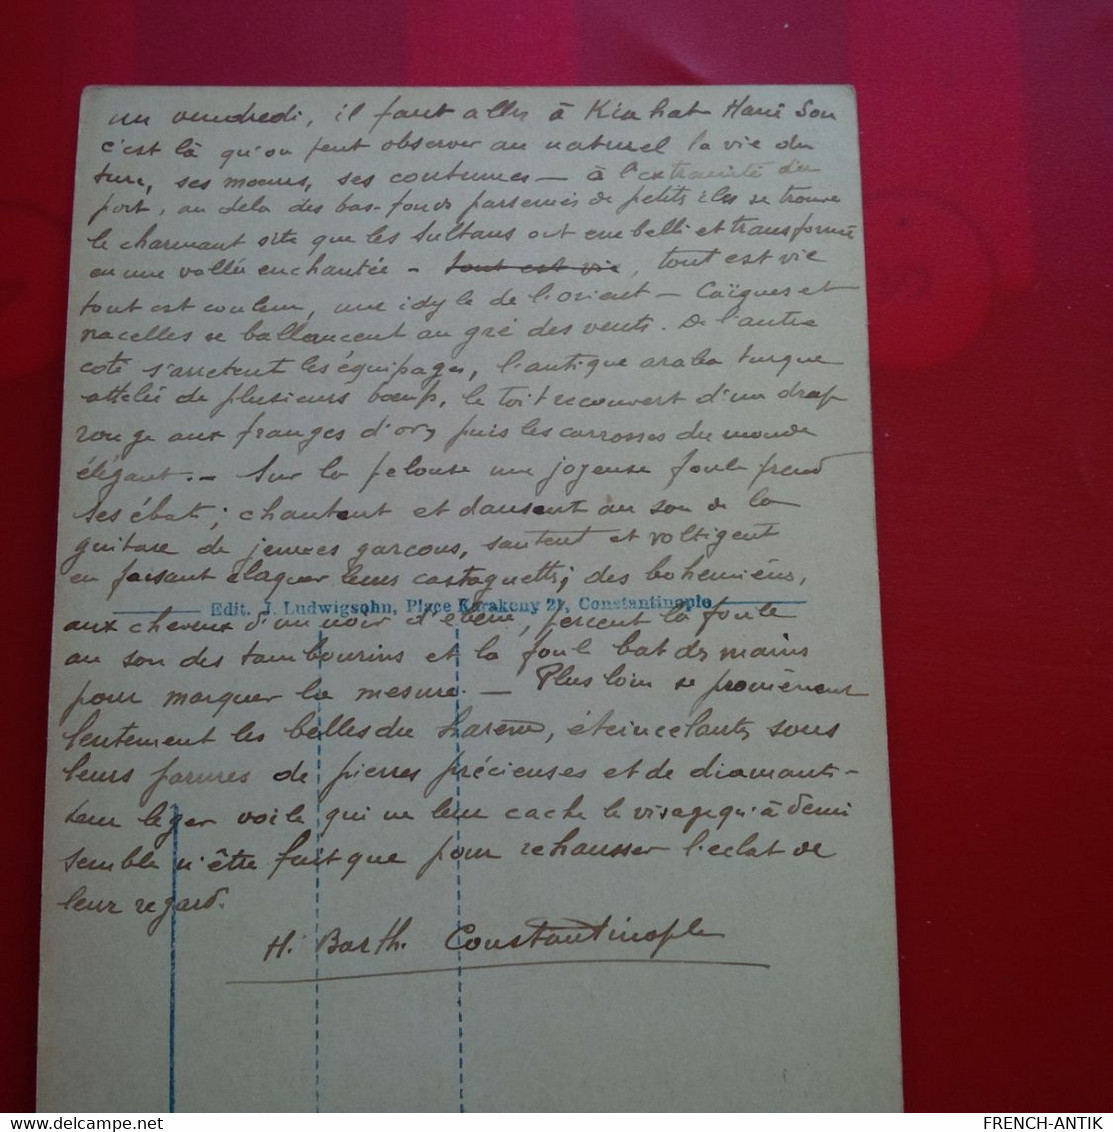 un vendredi, il faut aller à Kiahat Hané Sou
c'est là qu'on peut observer au naturel la vie du
turc, ses moeurs, ses coutumes — à l'extrémité du
port, au delà des bas-fonds parsemés de petits îles se trouve
le charmant site que les Sultans ont embelli et transformé
en une vallée enchantée — tout est vie, tout est vie
tout est couleur, une idyle de l'orient — Caïques et
nacelles se ballancent au gré des vents. De l'autre
coté s'arretent les équipages, l'antique araba turque
attelée de plusieurs boeufs, le toit recouvert d'un drap
rouge aux franges d'or, puis les carrosses du monde
élégant. — Sur la pelouse une joyeuse foule prend
ses ébats; chantent et dansent au son de la
guitare de jeunes garcons, sautent et voltigent
en faisant claquer leurs castagnetts; des bohemiens,
Edit. J. Ludwigsohn, Place Karakeny 21, Constantinople
aux cheveux d'un noir d'ebène, percent la foule
au son des tambourins et la foule bat des mains
pour marquer la mesure. — Plus loin se promènent
lentement les belles du harem, éteincelants sous
leurs parures de pierres précieuses et de diamants —
leur leger voile qui ne leur cache le visage qu'à demi
semble n'être fait que pour rehausser l'eclat de
leur regard.
H. Barth. Constantinople
FRENCH-ANTIK